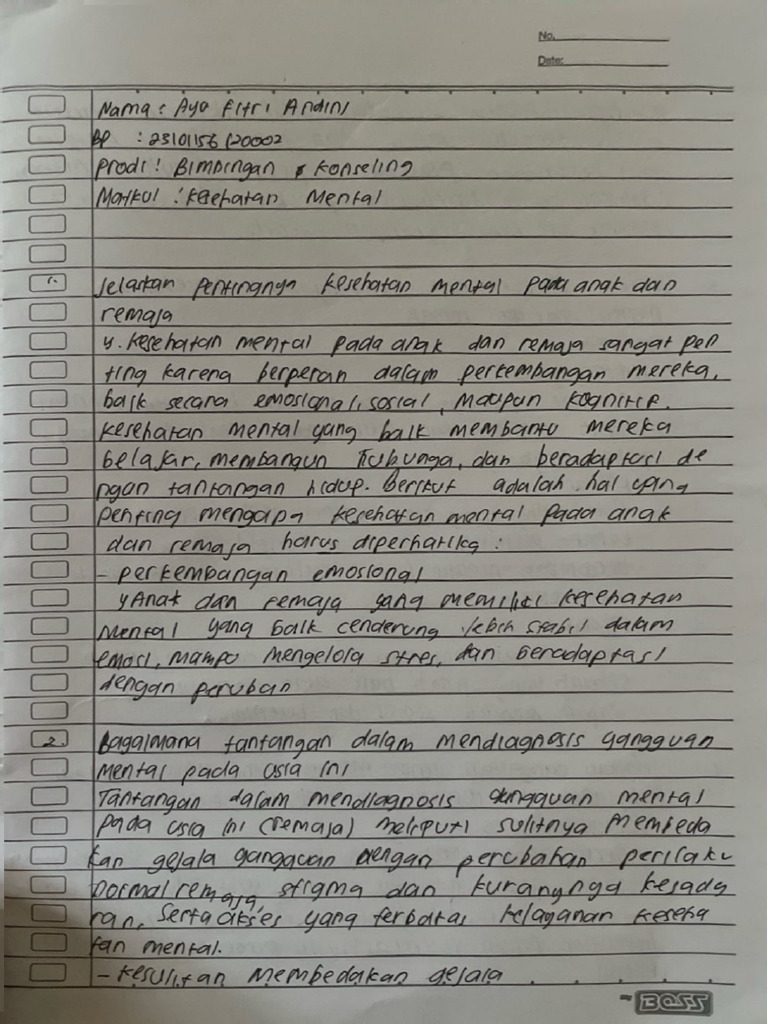 No.
Date:
Nama : Ayo Fitri Andini
BP : 23101156120002
Prodi : Bimbingan & Konseling
Matkul : Kesehatan Mental
1. Jelaskan pentingnya kesehatan mental pada anak dan
remaja
y. Kesehatan mental pada anak dan remaja sangat pen
ting karena berperan dalam perkembangan mereka,
baik secara emosional, sosial, maupun kognitif.
Kesehatan mental yang baik membantu mereka
belajar, membangun hubunga, dan beradaptasi de
ngan tantangan hidup. Berikut adalah hal yang
penting mengapa kesehatan mental pada anak
dan remaja harus diperhatika :
- perkembangan emosional
y Anak dan remaja yang memiliki kesehatan
Mental yang baik cenderung lebih stabil dalam
emosi, mampu mengelola stres, dan beradaptasi
dengan peruban
2. Bagaimana tantangan dalam mendiagnosis gangguan
mental pada usia ini
Tantangan dalam mendiagnosis gangguan mental
pada usia ini (remaja) meliputi sulitnya membeda
kan gejala gangguan dengan perubahan perilaku
normal remaja, stigma dan kurangnya kesada
ran, serta akses yang terbatas kelayanan keseha
tan mental.
- Kesulitan Membedakan gejala
BOSS